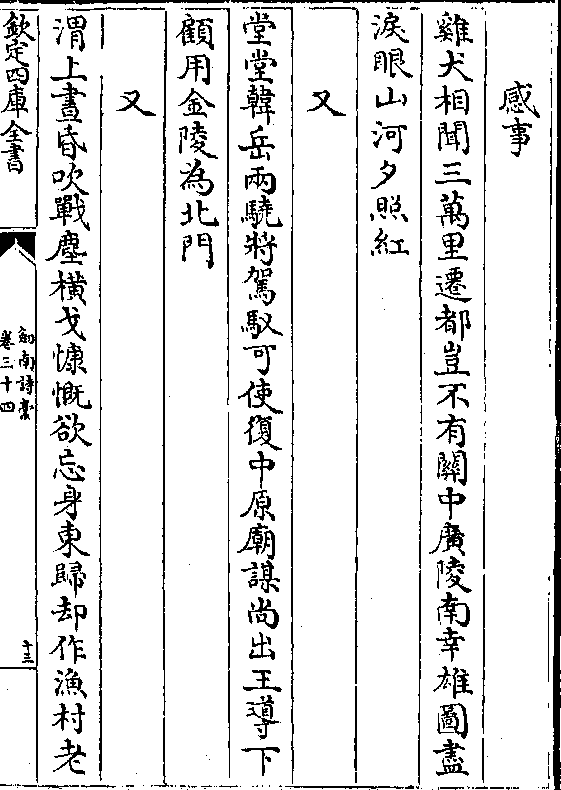 感事
雞犬相聞三萬里遷都豈不有關中廣陵南幸雄圖盡
淚眼山河夕照紅
又
堂堂韓岳兩驍將駕馭可使復中原廟謀尚出王導下
顧用金陵為北門
又
渭上晝昏吹戰塵橫戈慷慨欲忘身東歸却作漁村老
欽定四庫全書
劍南詩稾
卷三十四
十三